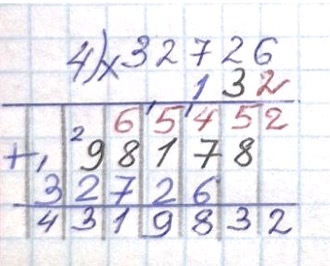 4) × 32726
132
65452
+ 98178
32726
4319832